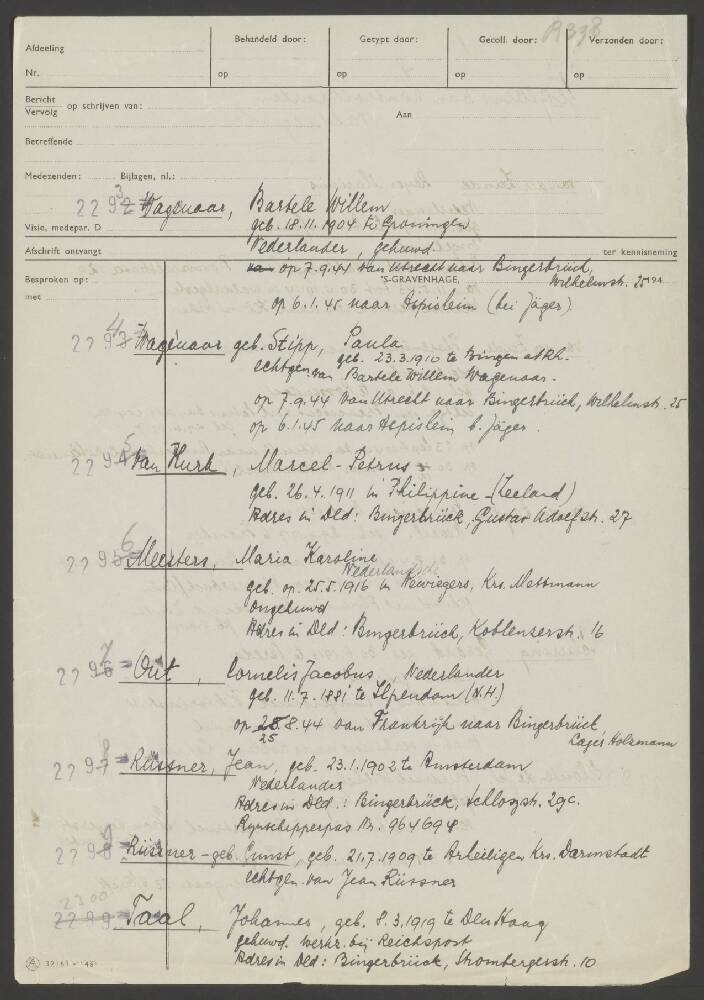 R378
Afdeeling
Behandeld door:
Getypt door:
Gecoll. door:
Verzonden door:
Nr.
op
op
op
op
Bericht
Vervolg op schrijven van:
Aan
Betreffende
Medezenden: Bijlagen, nl.:
2293 Wagenaar, Bartele Willem
Visie, medepar. D
geb. 18.11.1904 te Groningen
Nederlander, gehuwd
Afschrift ontvangt ter kennisneming
op 7.9.44 van Utrecht naar Bingerbrück,
Besproken op: 'S-GRAVENHAGE, Wilhelmstr. 25 194
met
op 6.1.45 naar Aspisheim (bei Jäger)
2294 Wagenaar geb. Stipp, Paula
geb. 23.3.1910 te Bingen a/Rh.
echtgen. van Bartele Willem Wagenaar.
op 7.9.44 van Utrecht naar Bingerbrück, Wilhelmstr. 25
op 6.1.45 naar b. Jäger.
2295 Van Hurk, Marcel-Petrus
geb. 26.4.1911 in Philippine (Zeeland)
Adres in Dld: Bingerbrück, Gustav Adolfstr. 27
2296 Meesters, Maria Karoline
Nederlandsche
geb. op 25.5.1916 in Krs. Mettmann
Ongehuwd
Adres in Dld: Bingerbrück, Koblenzerstr. 16
2297 Out, Cornelis Jacobus, Nederlander
geb. 11.7.1881 te Ilpendam (N.H.)
op 28.8.44 van Frankrijk naar Bingerbrück,
25 Lager Holzmann
2298 Rüssner, Jean, geb. 23.1.1902 te Amsterdam
Nederlander
Adres in Dld.: Bingerbrück, 29c.
Rijnschipperpas Nr. 964694
2299 Rüssner-geb. Ernst, geb. 21.7.1909 te Krs. Darmstadt
echtgen. van Jean Rüssner
2300
2299 Taal, Johannes, geb. 8.3.1919 te Den Haag
gehuwd. werkz. bij Reichspost
Adres in Dld: Bingerbrück, Strombergerstr. 10